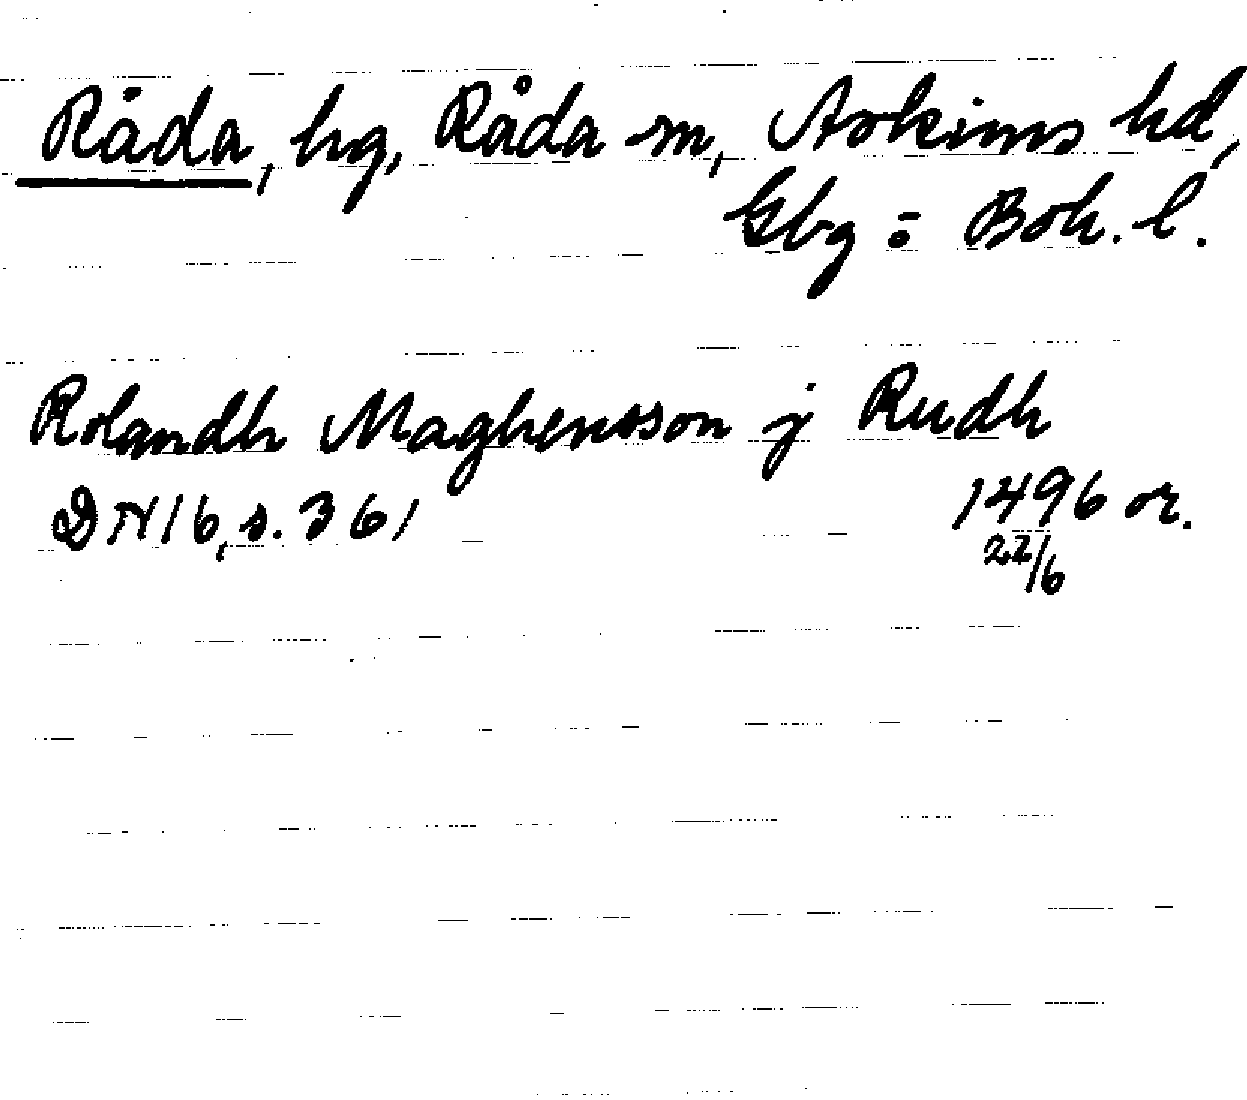 Råda, hg, Råda sn, Askims hd,
Gbg o. Boh. l.
Rolandh Maghensson j Rudh
DN 16, s. 361 1496 or.
22/6